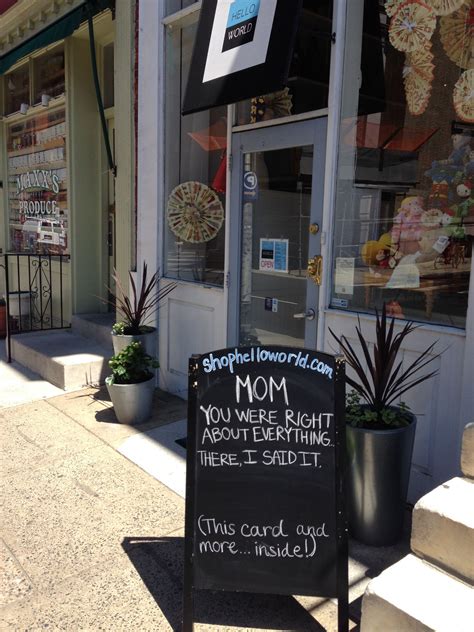 HELLO
WORLD
MAXX'S
PRODUCE
OPEN
shophelloworld.com
MOM
YOU WERE RIGHT
ABOUT EVERYTHING...
THERE, I SAID IT.
(This card and
more... inside!)